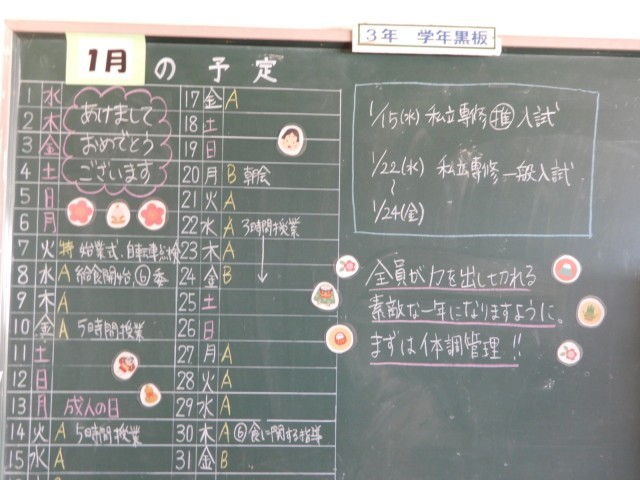 3年 学年黒板
1月の予定
1 水 あけまして
2 木 おめでとう
3 金 ございます
4 土
5 日
6 月
7 火 特 始業式、自転車点検
8 水 A 給食開始、⑥委
9 木 A
10 金 A 5時間授業
11 土
12 日
13 月 成人の日
14 火 A 5時間授業
15 水 A
17 金 A
18 土
19 日
20 月 B 朝会
21 火 A
22 水 A 3時間授業
23 木 A
24 金 B
25 土
26 日
27 月 A
28 火 A
29 水 A
30 木 A ⑥食に関する指導
31 金 B
1/15(水) 私立専修推入試
1/22(水) 私立専修一般入試
〜
1/24(金)
全員が力を出し切れる
素敵な一年になりますように。
まずは体調管理!!